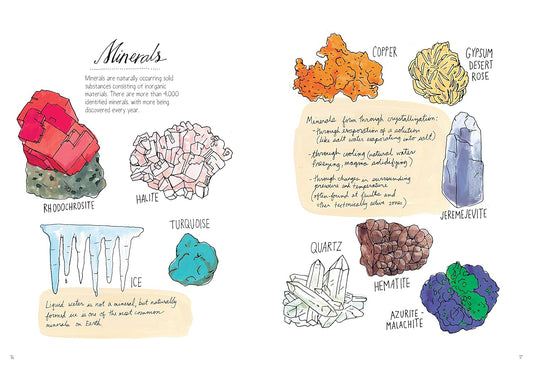 Minerals
Minerals are naturally occurring solid
substances consisting of inorganic
materials. There are more than 4,000
identified minerals, with more being
discovered every year.
RHODOCHROSITE
HALITE
TURQUOISE
ICE
Liquid water is not a mineral, but naturally
formed ice is one of the most common
minerals on Earth.
16
COPPER
GYPSUM
DESERT
ROSE
Minerals form through crystallization:
- through evaporation of a solution
(like salt water evaporating into salt)
- through cooling (natural water
freezing, magma solidifying)
- through changes in surrounding
pressure and temperature
(often found at faults and
other tectonically active zones)
JEREMEJEVITE
QUARTZ
HEMATITE
AZURITE-
MALACHITE
17